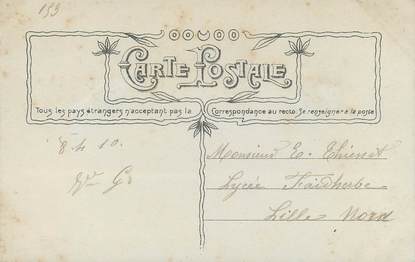 153
CARTE POSTALE
Tous les pays étrangers n'acceptant pas la Correspondance au recto. Se renseigner à la poste
8 4 10.
Monsieur E.
Lycée Faidherbe
Lille Nord